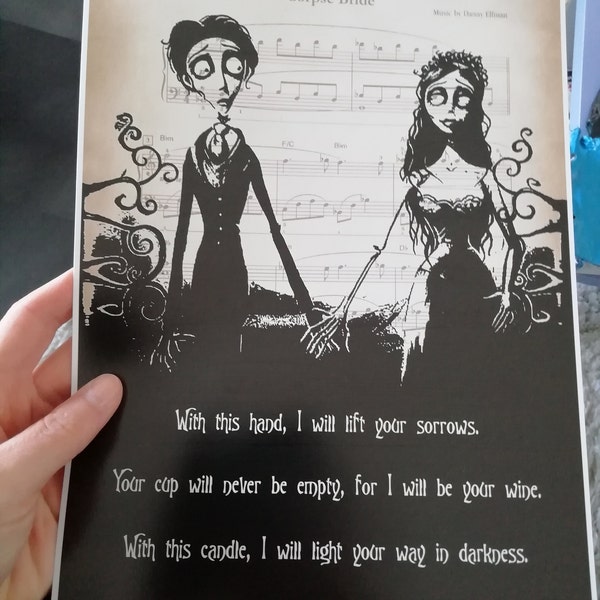 Corpse Bride
Music by Danny Elfman
Bbm
F/C
Bbm
With this hand, I will lift your sorrows.
Your cup will never be empty, for I will be your wine.
With this candle, I will light your way in darkness.